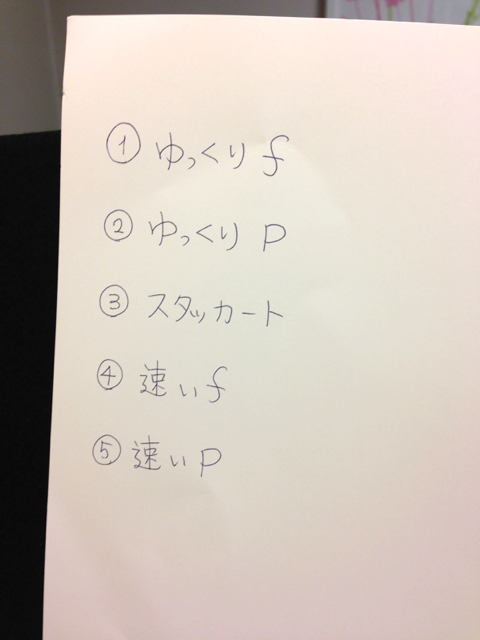 ① ゆっくり f
② ゆっくり p
③ スタッカート
④ 速い f
⑤ 速い p